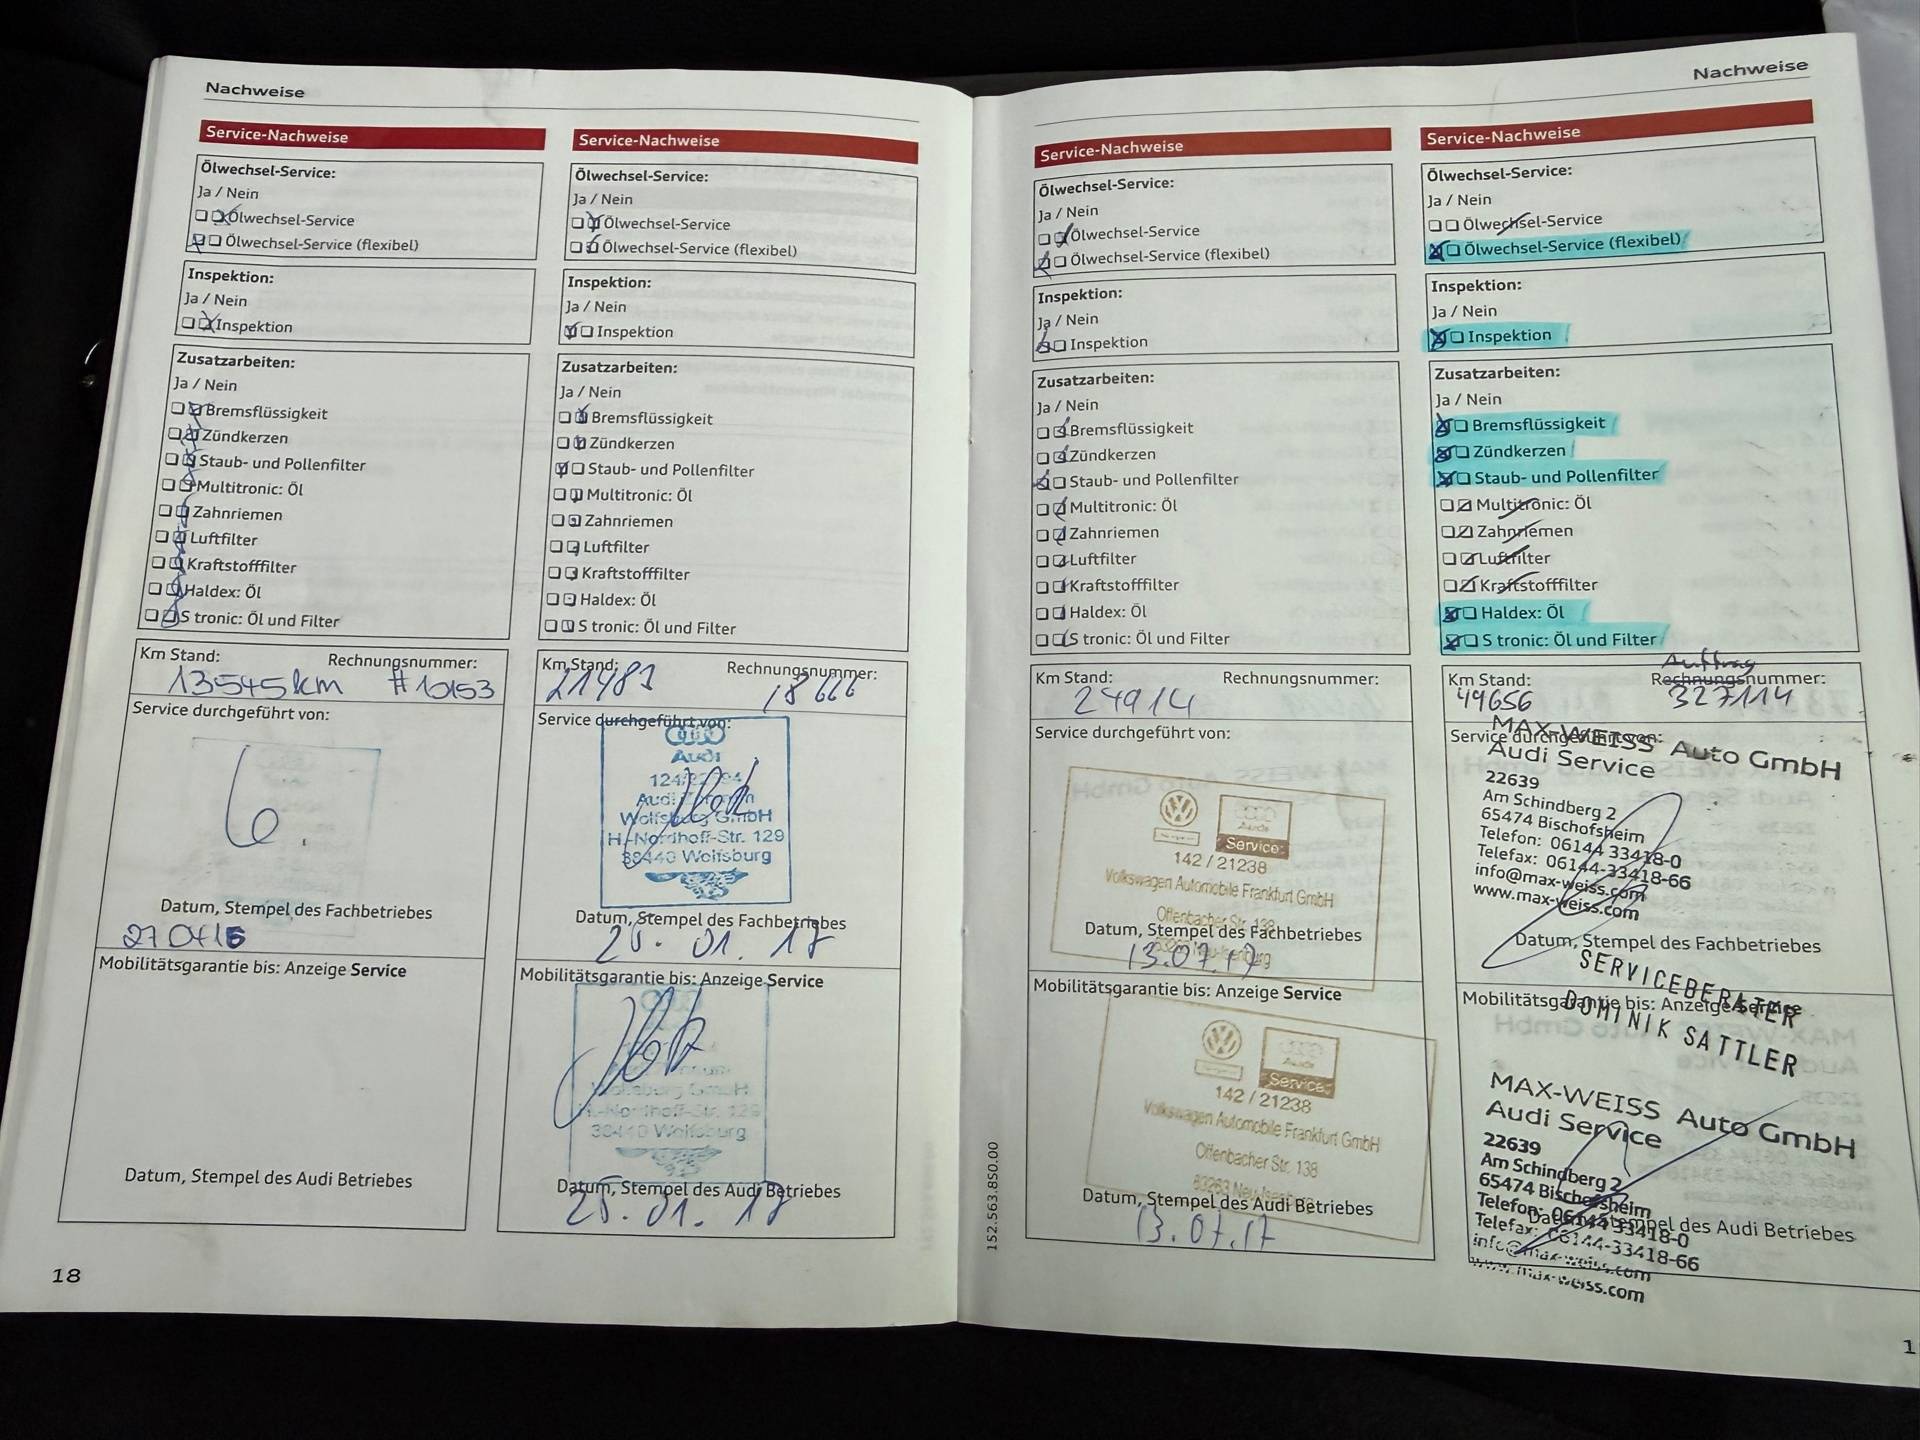 Nachweise
Service-Nachweise
Ölwechsel-Service:
Ja / Nein
Ölwechsel-Service
Ölwechsel-Service (flexibel)
Inspektion:
Ja / Nein
Inspektion
Zusatzarbeiten:
Ja / Nein
Bremsflüssigkeit
Zündkerzen
Staub- und Pollenfilter
Multitronic: Öl
Zahnriemen
Luftfilter
Kraftstofffilter
Haldex: Öl
S tronic: Öl und Filter
Km Stand: Rechnungsnummer:
13545km #10153
Service durchgeführt von:
Datum, Stempel des Fachbetriebes
Mobilitätsgarantie bis: Anzeige Service
Datum, Stempel des Audi Betriebes
18
Service-Nachweise
Ölwechsel-Service:
Ja / Nein
Ölwechsel-Service
Ölwechsel-Service (flexibel)
Inspektion:
Ja / Nein
Inspektion
Zusatzarbeiten:
Ja / Nein
Bremsflüssigkeit
Zündkerzen
Staub- und Pollenfilter
Multitronic: Öl
Zahnriemen
Luftfilter
Kraftstofffilter
Haldex: Öl
S tronic: Öl und Filter
Km Stand: Rechnungsnummer:
18666
Service durchgeführt von:
Audi
Audi
Wolfsburg GmbH
H.-Nordhoff-Str. 129
38440 Wolfsburg
Datum, Stempel des Fachbetriebes
25. 01. 17
Mobilitätsgarantie bis: Anzeige Service
Wolfsburg GmbH
H.-Nordhoff-Str. 129
38440 Wolfsburg
Datum, Stempel des Audi Betriebes
25. 01. 17
Nachweise
Service-Nachweise
Ölwechsel-Service:
Ja / Nein
Ölwechsel-Service
Ölwechsel-Service (flexibel)
Inspektion:
Ja / Nein
Inspektion
Zusatzarbeiten:
Ja / Nein
Bremsflüssigkeit
Zündkerzen
Staub- und Pollenfilter
Multitronic: Öl
Zahnriemen
Luftfilter
Kraftstofffilter
Haldex: Öl
S tronic: Öl und Filter
Km Stand: Rechnungsnummer:
24914
Service durchgeführt von:
Audi
Service
142 / 21238
Volkswagen Automobile Frankfurt GmbH
Offenbacher Str. 138
Datum, Stempel des Fachbetriebes
13.07.17
Mobilitätsgarantie bis: Anzeige Service
Audi
Service
142 / 21238
Volkswagen Automobile Frankfurt GmbH
Offenbacher Str. 138
63263 Neu-Isenburg
Datum, Stempel des Audi Betriebes
13.07.17
152.563.850.00
Service-Nachweise
Ölwechsel-Service:
Ja / Nein
Ölwechsel-Service
Ölwechsel-Service (flexibel)
Inspektion:
Ja / Nein
Inspektion
Zusatzarbeiten:
Ja / Nein
Bremsflüssigkeit
Zündkerzen
Staub- und Pollenfilter
Multitronic: Öl
Zahnriemen
Luftfilter
Kraftstofffilter
Haldex: Öl
S tronic: Öl und Filter
Auftrag
Km Stand: Rechnungsnummer:
49656 327114
Service durchgeführt von:
MAX-WEISS Auto GmbH
Audi Service
22639
Am Schindberg 2
65474 Bischofsheim
Telefon: 06144 33418-0
Telefax: 06144-33418-66
info@max-weiss.com
www.max-weiss.com
Datum, Stempel des Fachbetriebes
SERVICEBERATER
Mobilitätsgarantie bis: Anzeige Service
DOMINIK SATTLER
MAX-WEISS Auto GmbH
Audi Service
22639
Am Schindberg 2
65474 Bischofsheim
Telefon: 06144 33418-0
Datum, Stempel des Audi Betriebes
Telefax: 06144-33418-66
info@max-weiss.com
www.max-weiss.com
1